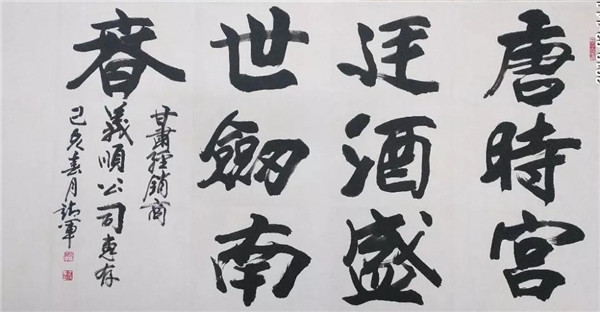 唐時宮
廷酒盛
世劒南
春
甘肅經銷商
義順公司惠存
己亥春月